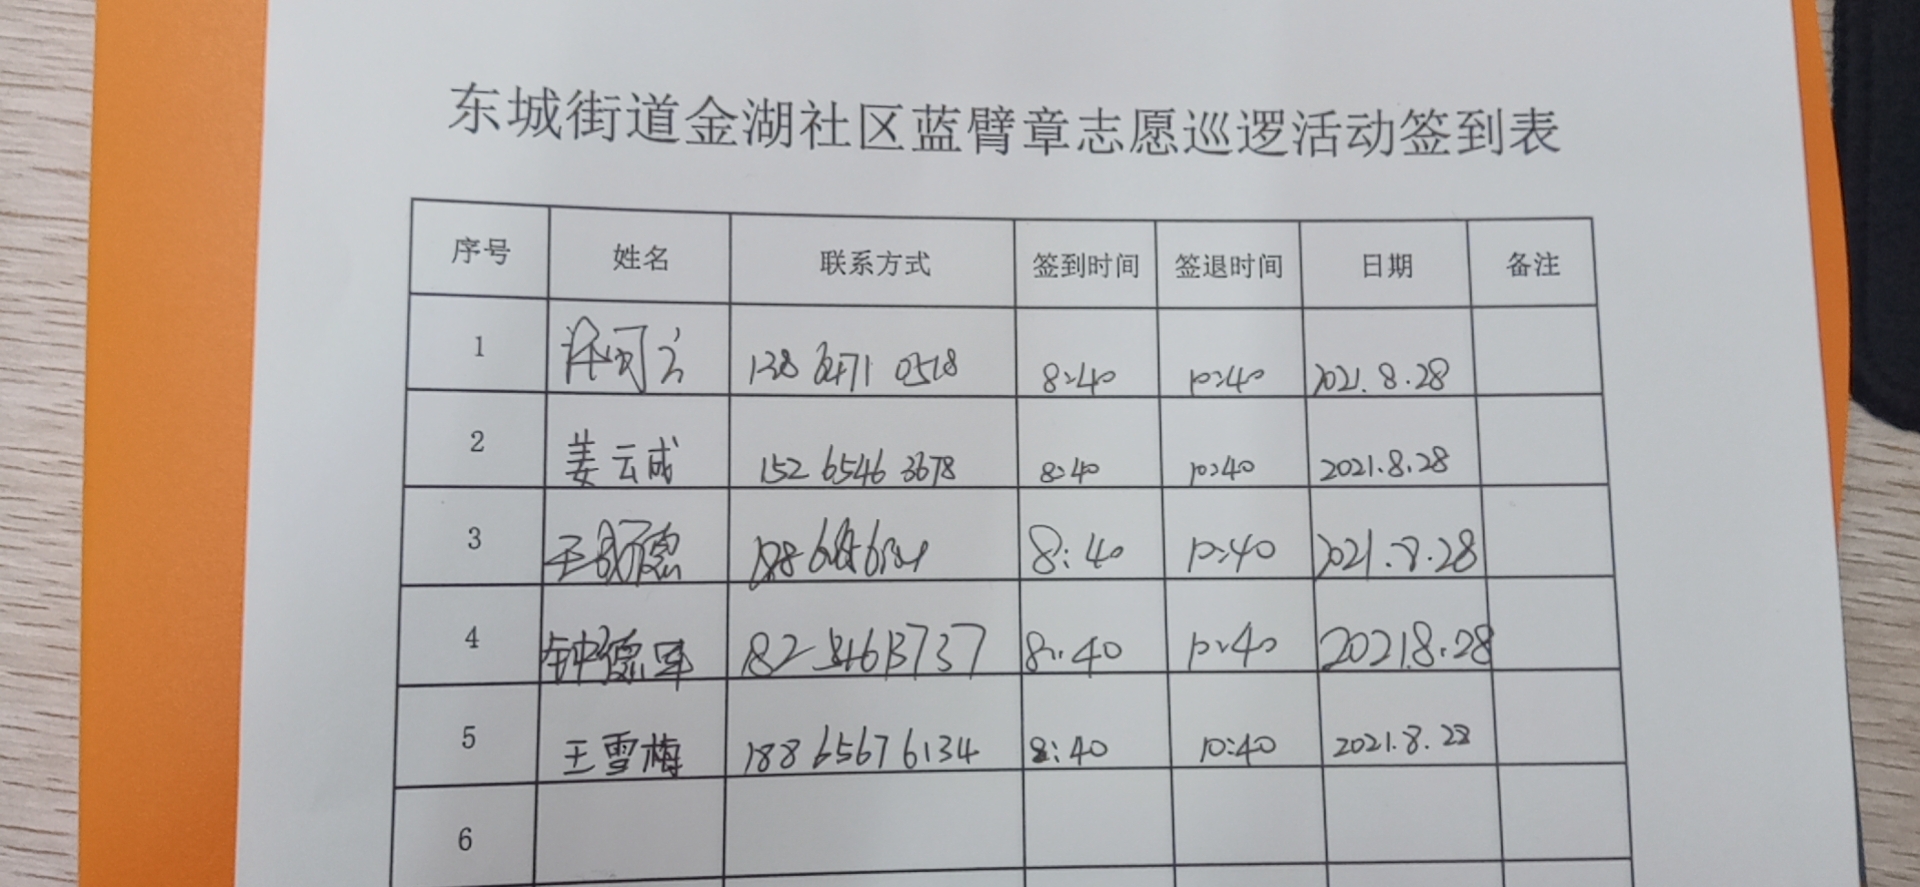 东城街道金湖社区蓝臂章志愿巡逻活动签到表
序号 姓名 联系方式 签到时间 签退时间 日期 备注
1 8:40 10:40 2021.8.28
2 姜云成 152 6546 3678 8:40 10:40 2021.8.28
3 8:40 10:40 2021.8.28
4 8:40 10:40 2021.8.28
5 王雪梅 188 6567 6134 8:40 10:40 2021.8.28
6